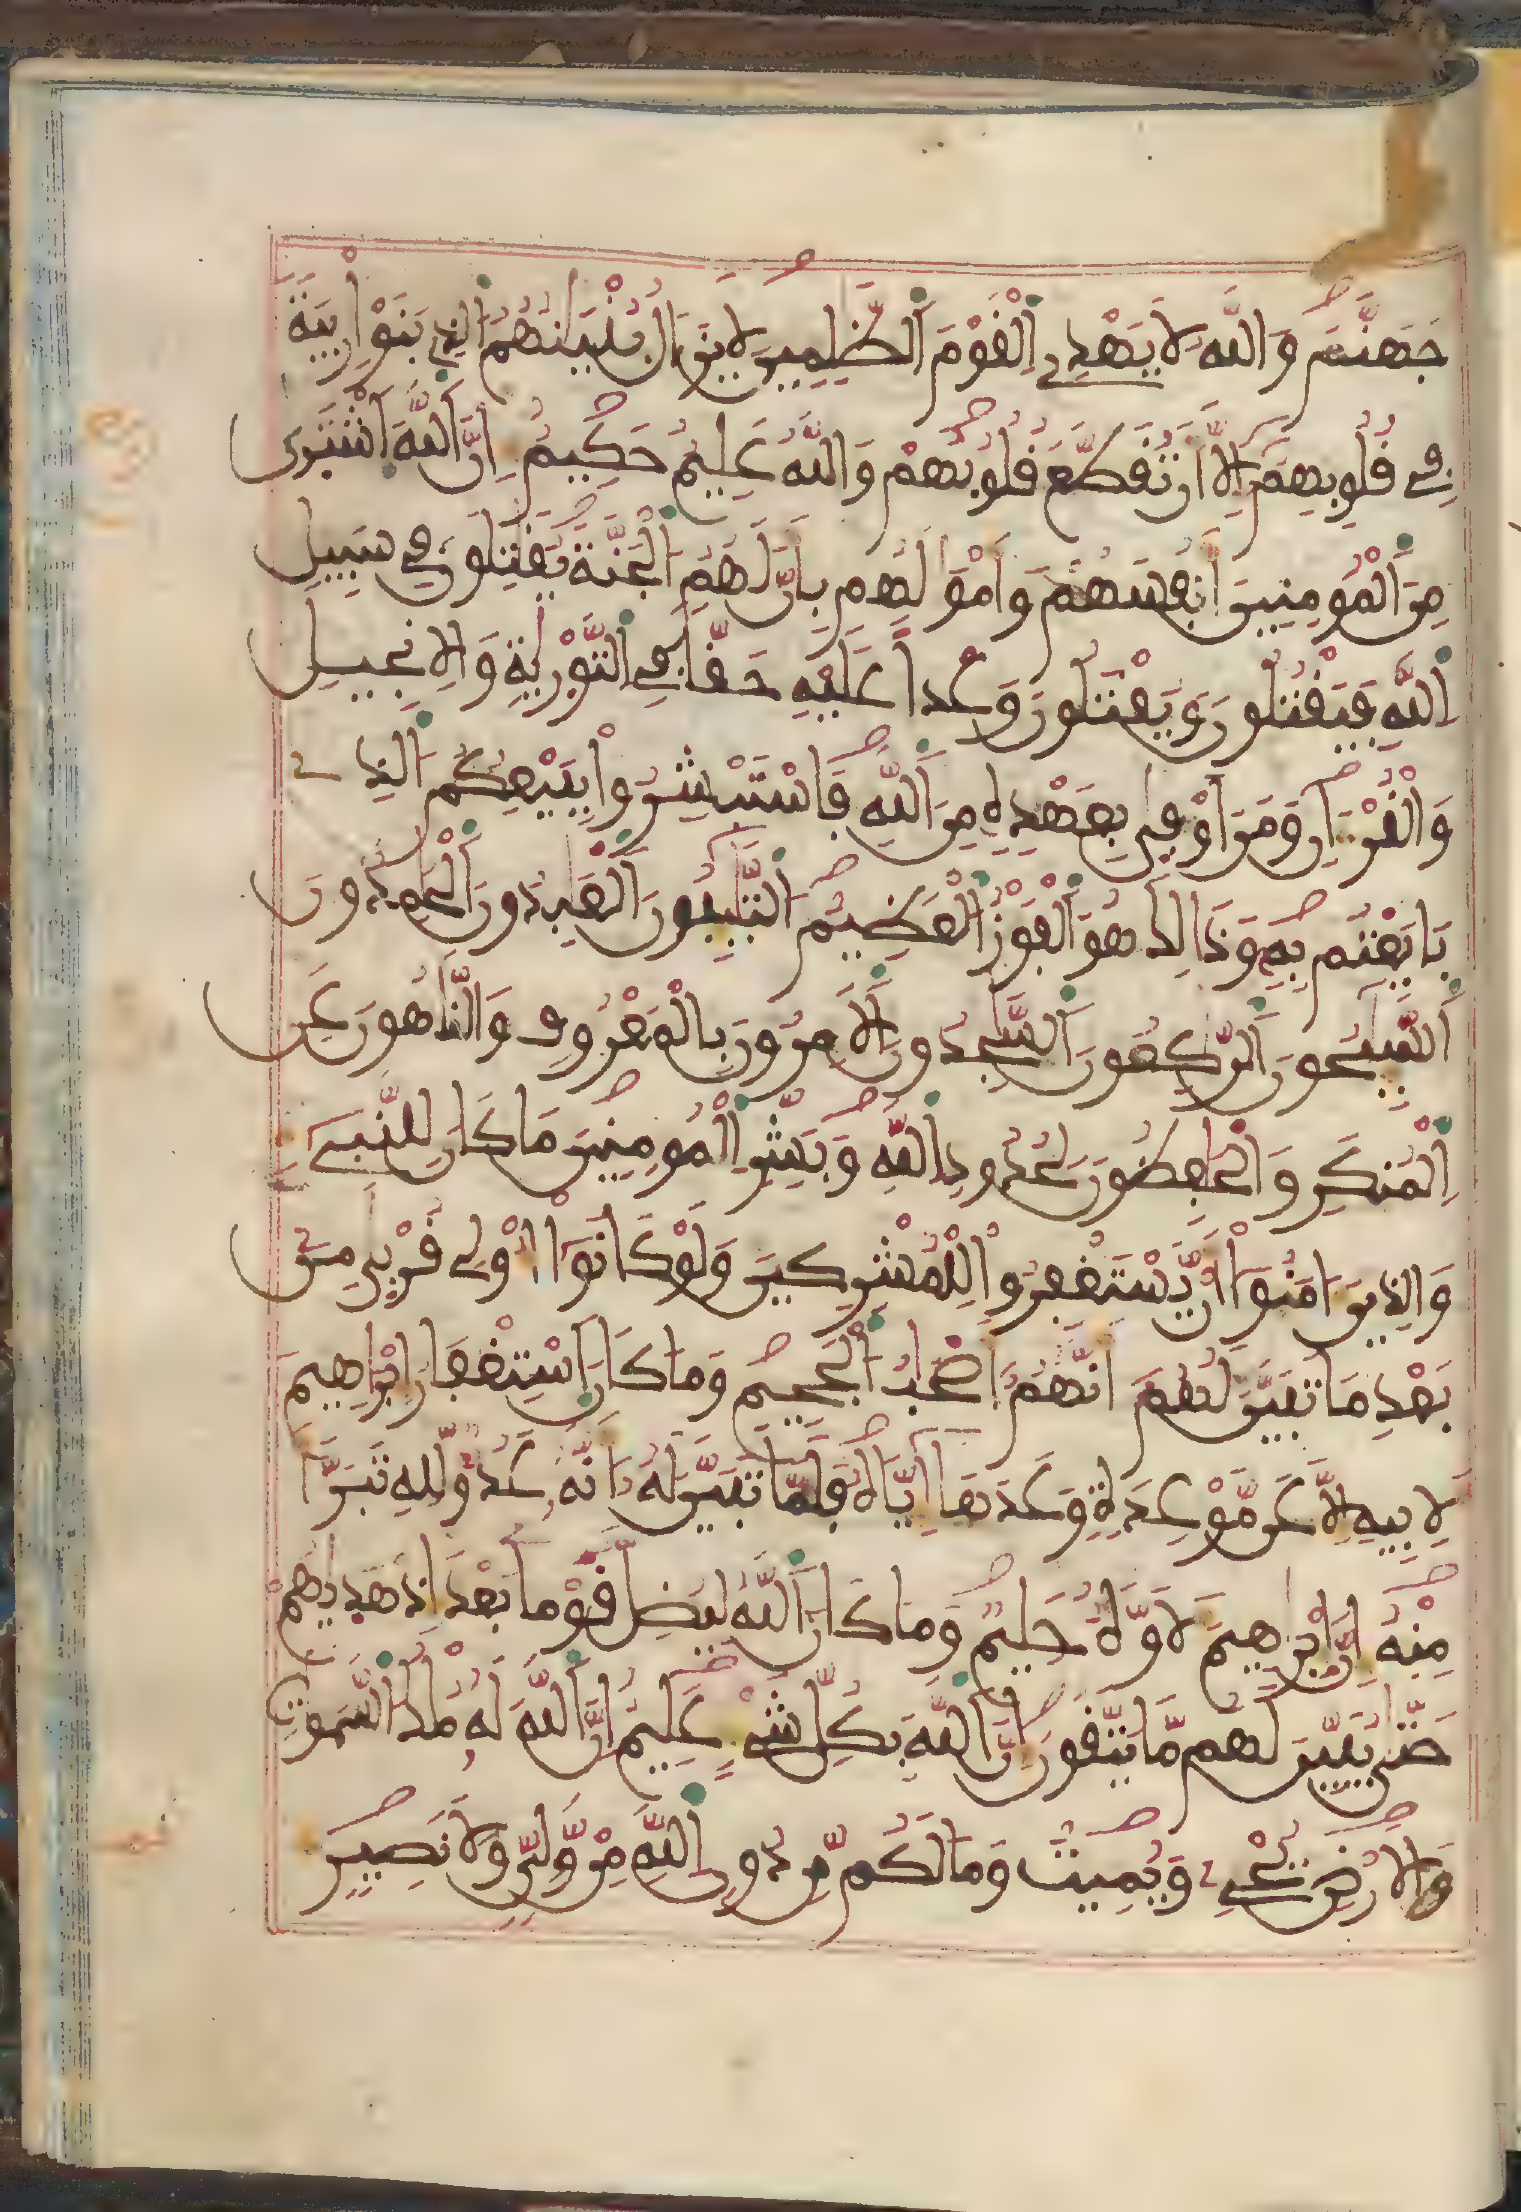 جَهَنَّمَ وَاللَّهُ لَا يَهْدِے اِلْقَوْمَ اَلظَّٰلِمِينَ لَا يَزَالُ بُنْيَٰنُهُمُ اُلذِے بَنَوْاْ رِيبَةٗ
فِے قُلُوبِهِمُۥٓ إِلَّآ أَن تُقَطَّعَ قُلُوبُهُمْ وَاللَّهُ عَلِيمٌ حَكِيمٌ إِنَّ اَللَّهَ اَشْتَرَىٰ
مِنَ اَلْمُومِنِينَ أَنفُسَهُمْ وَأَمْوَٰلَهُم بِأَنَّ لَهُمُ اُلْجَنَّةَ يُقَٰتِلُونَ فِے سَبِيلِ
اِللَّهِ فَيَقْتُلُونَ وَيُقْتَلُونَ وَعْداً عَلَيْهِ حَقّاٗ فِے اِلتَّوْرَيٰةِ وَالِانجِيلِ
وَالْقُرْءَانِ وَمَنَ اَوْفَىٰ بِعَهْدِهِۦ مِنَ اَللَّهِ فَاسْتَبْشِرُواْ بِبَيْعِكُمُ اُلذِے
بَايَعْتُم بِهِۦ وَذَٰلِكَ هُوَ اَلْفَوْزُ اُلْعَظِيمُ اُلتَّٰٓئِبُونَ اَلْعَٰبِدُونَ اَلْحَٰمِدُونَ
اَلسَّٰٓئِحُونَ اَلرَّٰكِعُونَ اَلسَّٰجِدُونَ اَلَامِرُونَ بِالْمَعْرُوفِ وَالنَّاهُونَ عَنِ
اِلْمُنكَرِ وَالْحَٰفِظُونَ لِحُدُودِ اِللَّهِ وَبَشِّرِ اِلْمُومِنِينَ مَا كَانَ لِلنَّبِےٓءِ
وَالذِينَ ءَامَنُوٓاْ أَنْ يَّسْتَغْفِرُواْ لِلْمُشْرِكِينَ وَلَوْ كَانُوٓاْ أُوْلِے قُرْبَىٰ مِنۢ
بَعْدِ مَا تَبَيَّنَ لَهُمُۥٓ أَنَّهُمُۥٓ أَصْحَٰبُ اُلْجَحِيمِ وَمَا كَانَ اَسْتِغْفَارُ إِبْرَٰهِيمَ
لِأَبِيهِ إِلَّا عَن مَّوْعِدَةٖ وَعَدَهَآ إِيَّاهُ فَلَمَّا تَبَيَّنَ لَهُۥٓ أَنَّهُۥ عَدُوٌّ لِّلهِ تَبَرَّأَ
مِنْهُ إِنَّ إِبْرَٰهِيمَ لَأَوَّٰهٌ حَلِيمٌ وَمَا كَانَ اَللَّهُ لِيُضِلَّ قَوْماَۢ بَعْدَ إِذْ هَدَيٰهُمْ
حَتَّىٰ يُبَيِّنَ لَهُم مَّا يَتَّقُونَ إِنَّ اَللَّهَ بِكُلِّ شَےْءٍ عَلِيمٌ إِنَّ اَللَّهَ لَهُۥ مُلْكُ اُلسَّمَٰوَٰتِ
وَالَارْضِ يُحْيِۦ وَيُمِيتُ وَمَا لَكُم مِّن دُونِ اِللَّهِ مِنْ وَّلِيّٖ وَلَا نَصِيرٖ